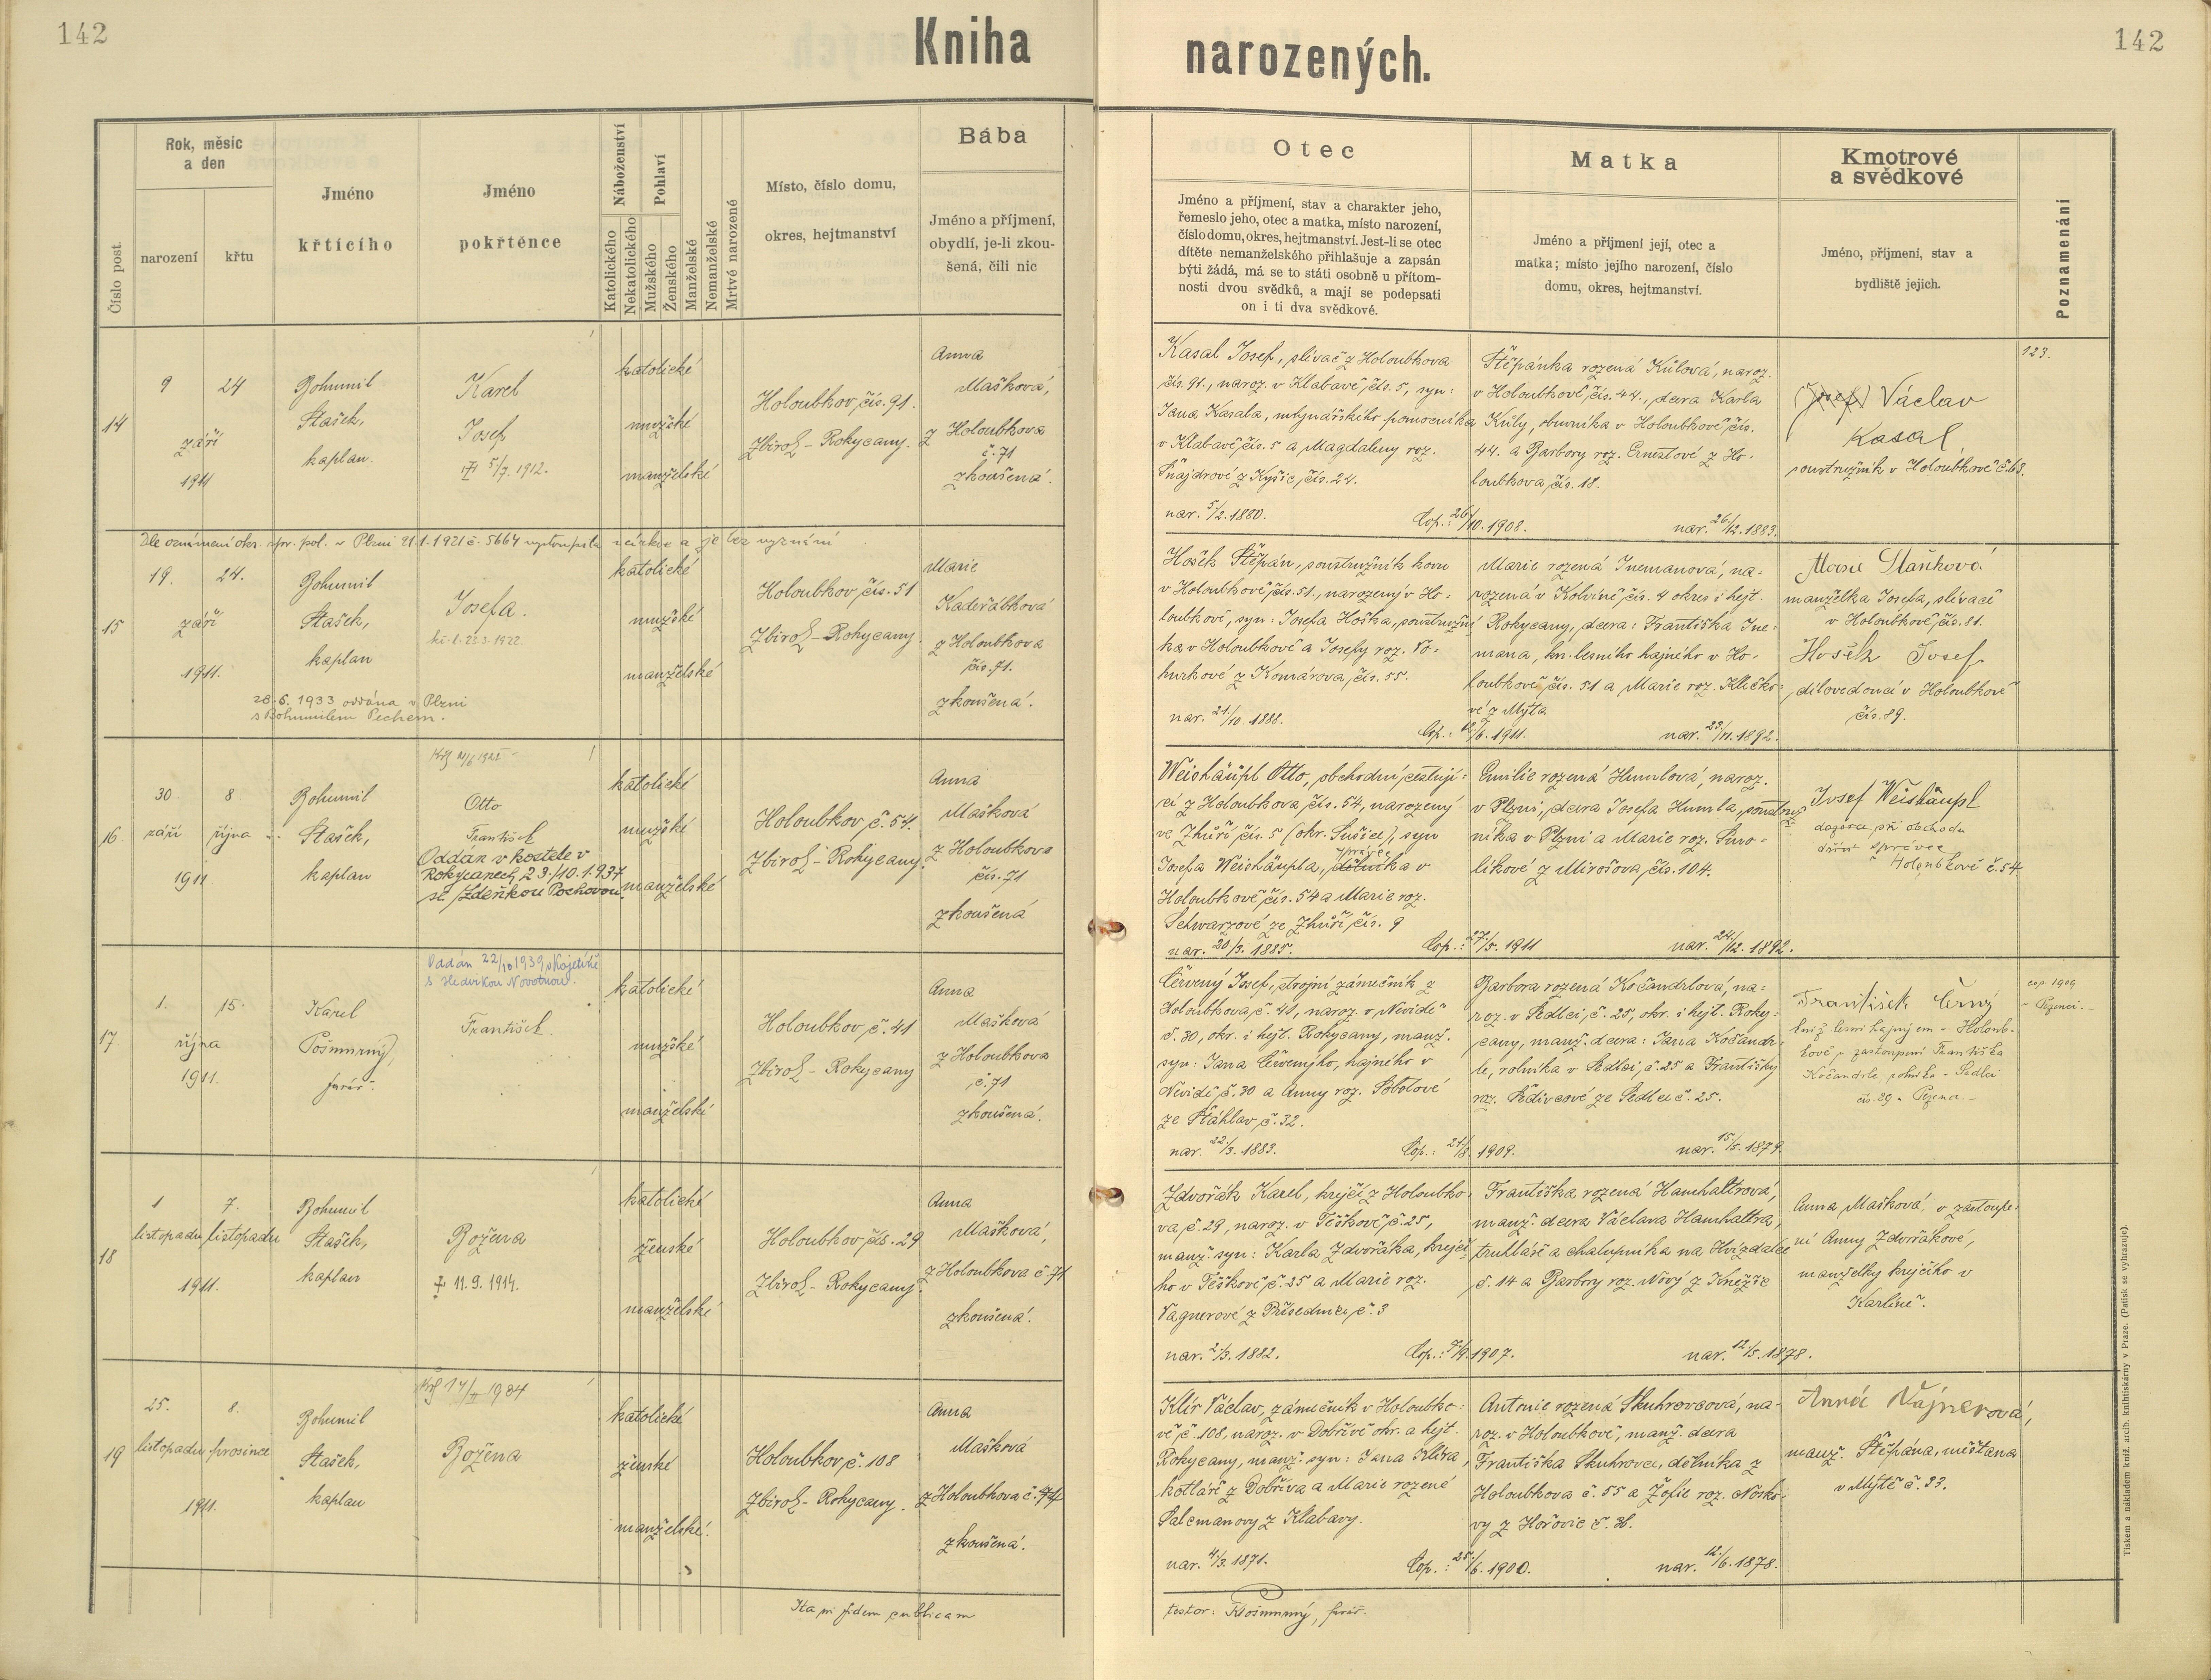 142
Kniha
narozených.
142
Číslo post.
Rok, měsíc
a den
narození
křtu
Jméno
křtícího
Jméno
pokřtěnce
Náboženství
Katolického
Nekatolického
Pohlaví
Mužského
Ženského
Manželské
Nemanželské
Mrtvě narozené
Místo, číslo domu,
okres, hejtmanství
Bába
Jméno a příjmení,
obydlí, je-li zkou-
šená, čili nic
Otec
Jméno a příjmení, stav a charakter jeho,
řemeslo jeho, otec a matka, místo narození,
číslo domu, okres, hejtmanství. Jest-li se otec
dítěte nemanželského přihlašuje a zapsán
býti žádá, má se to státi osobně u přítom-
nosti dvou svědků, a mají se podepsati
on i ti dva svědkové.
Matka
Jméno a příjmení její, otec a
matka; místo jejího narození, číslo
domu, okres, hejtmanství.
Kmotrové
a svědkové
Jméno, příjmení, stav a
bydliště jejich.
Poznamenání
14
9
září
1911
24
Bohumil
Stašek,
kaplan.
Karel
Josef
5/7. 1912.
katolické
mužské
manželské
Holoubkov, čís. 91.
Zbiroh - Rokycany.
Anna
Mašková,
z Holoubkova
č. 71
zkoušená.
Kasal Josef, slívač z Holoubkova
čís. 91., naroz. v Klabavě, čís. 5, syn:
Jana Kasala, mlynářského pomocníka
v Klabavě, čís. 5 a Magdaleny roz.
Šnajdrové z Kyšic, čís. 24.
nar. 5/2. 1880.
Cop.: 26/10. 1908.
Štěpánka rozená Kůlová, naroz.
v Holoubkově, čís. 44., dcera Karla
Kůly, obuvníka v Holoubkově, čís.
44. a Barbory roz. Ernestové z Ho-
loubkova, čís. 18.
nar. 26/12. 1883.
(Josef) Václav
Kasal
soustružník v Holoubkově č. 63.
123.
Dle oznámení okr. spr. pol. v Plzni 21.1.1921 č. 5664 vystoupila z církve a je bez vyznání
15
19.
září
1911.
24.
Bohumil
Stašek,
kaplan
Josefa.
28.6. 1933 oddána v Plzni
s Bohumilem Pechem.
katolické
mužské
manželské
Holoubkov, čís. 51
Zbiroh - Rokycany.
Marie
Kadeřábková
z Holoubkova
čís. 71.
zkoušená.
Hošek Štěpán, soustružník kovu
v Holoubkově, čís. 51., narozený v Ho-
loubkově, syn: Josefa Hoška, soustružní-
ka v Holoubkově a Josefy roz. Vo-
hurkové z Komárova, čís. 55.
nar. 21/10. 1888.
Cop.: 12/6. 1911.
Marie rozená Inemanová, na-
rozená v Kolvíně, čís. 4 okres i hejt.
Rokycany, dcera: Františka Ine-
mana, kn. lesního hajného v Ho-
loubkově, čís. 51 a Marie roz. Kličko-
vé z Mýta
nar. 23/11. 1892.
Marie Staňková
manželka Josefa, slívače
v Holoubkově, čís. 81.
Hošek Josef
dílovedoucí v Holoubkově
čís. 89.
16
30
září
1911
8
října
Bohumil
Stašek,
kaplan
Otto
František
Oddán v kostele v
Rokycanech, 23./10. 1937
se Zdeňkou Pochovou.
katolické
mužské
manželské
Holoubkov, č. 54.
Zbiroh - Rokycany.
Anna
Mašková
z Holoubkova
čís. 71
zkoušená
Weishäupl Otto, obchodní cestují-
cí z Holoubkova, čís. 54, narozený
ve Zhůří, čís. 5 (okr. Sušice), syn
Josefa Weishäupla, dělníka v
Holoubkově, čís. 54 a Marie roz.
Schwarzové ze Zhůří, čís. 9
nar. 20/3. 1885.
Cop.: 27/5. 1911
Emilie rozená Humlová, naroz.
v Plzni, dcera Josefa Humla, soustruž-
níka v Plzni a Marie roz. Smo-
líkové z Mirošova, čís. 104.
nar. 24/12. 1892.
Josef Weishäupl
dozorce při obchodu
správce
v Holoubkově č. 54
17
1.
října
1911.
15.
Karel
Pošmurný,
farář.
Oddán 22/10 1939 v Kojetíně
s Hedvikou Novotnou.
František.
katolické
mužské
manželské
Holoubkov, č. 41
Zbiroh - Rokycany
Anna
Mašková
z Holoubkova
č. 71
zkoušená.
Červený Josef, strojní zámečník z
Holoubkova, č. 41, naroz. v Nevidě
č. 30, okr. i hejt. Rokycany, manž.
syn: Jana Červeného, hajného v
Nevidě, č. 30 a Anny roz. Sobotové
ze Šťáhlav, č. 32.
nar. 22/3. 1883.
Cop.: 21/8. 1909.
Barbora rozená Kočandrlová, na-
roz. v Sedlci, č. 25, okr. i hejt. Roky-
cany, manž. dcera: Jana Kočandr-
le, rolníka v Sedlci, č. 25 a Františky
roz. Šedivcové ze Sedlce č. 25.
nar. 15/5. 1879.
František Černý
kníž. lesní hajným v Holoub-
kově v zastoupení Františka
Kočandrle rolníka v Sedlci
cop. 1909
18
1
listopadu
1911.
7.
listopadu
Bohumil
Stašek,
kaplan
Božena
† 11. 9. 1914.
katolické
ženské
manželské
Holoubkov, čís. 29
Zbiroh - Rokycany.
Anna
Mašková,
z Holoubkova č. 71
zkoušená.
Zdvořák Karel, krejčí z Holoubko-
va, č. 29, naroz. v Těškově, č. 25,
manž. syn: Karla Zdvořáka, krejčí-
ho v Těškově, č. 25 a Marie roz.
Vagnerové z Přísednice, č. 3
nar. 2/3. 1882.
Cop.: 7/9. 1907.
Františka rozená Hamhaltrová,
manž. dcera Václava Hamhaltra,
truhláře a chalupníka na Hvízdalce
č. 14 a Barbory roz. Nový z Kněžíc
nar. 12/5. 1878.
Anna Mašková, v zastoupe-
ní Anny Zdvořákové,
manželky krejčího v
Karlíně.
19
25.
listopadu
1911.
8.
prosince
Bohumil
Stašek,
kaplan
Božena
katolické
ženské
manželské.
Holoubkov, č. 108
Zbiroh - Rokycany.
Anna
Mašková
z Holoubkova č. 71
zkoušená.
Klír Václav, zámečník v Holoubko-
vě, č. 108, naroz. v Dobřívě okr. a hejt.
Rokycany, manž. syn: Jana Klíra,
kotláře z Dobříva a Marie rozené
Salcmanovy z Klabavy.
nar. 4/3. 1871.
Cop.: 25/6. 1900.
Antonie rozená Skuhrovcová, na-
roz. v Holoubkově, manž. dcera
Františka Skuhrovce, dělníka z
Holoubkova č. 55 a Žofie roz. Nosko-
vy z Hořovic č. 38.
nar. 12/6. 1878.
Anna Vájnerová,
manž. Štěpána, měšťana
v Mýtě č. 33.
Ita pr fidem publicam
testor: Pošmurný, farář.
Tiskem a nákladem kníž. arcib. knihtiskárny v Praze. (Patisk se vyhrazuje).